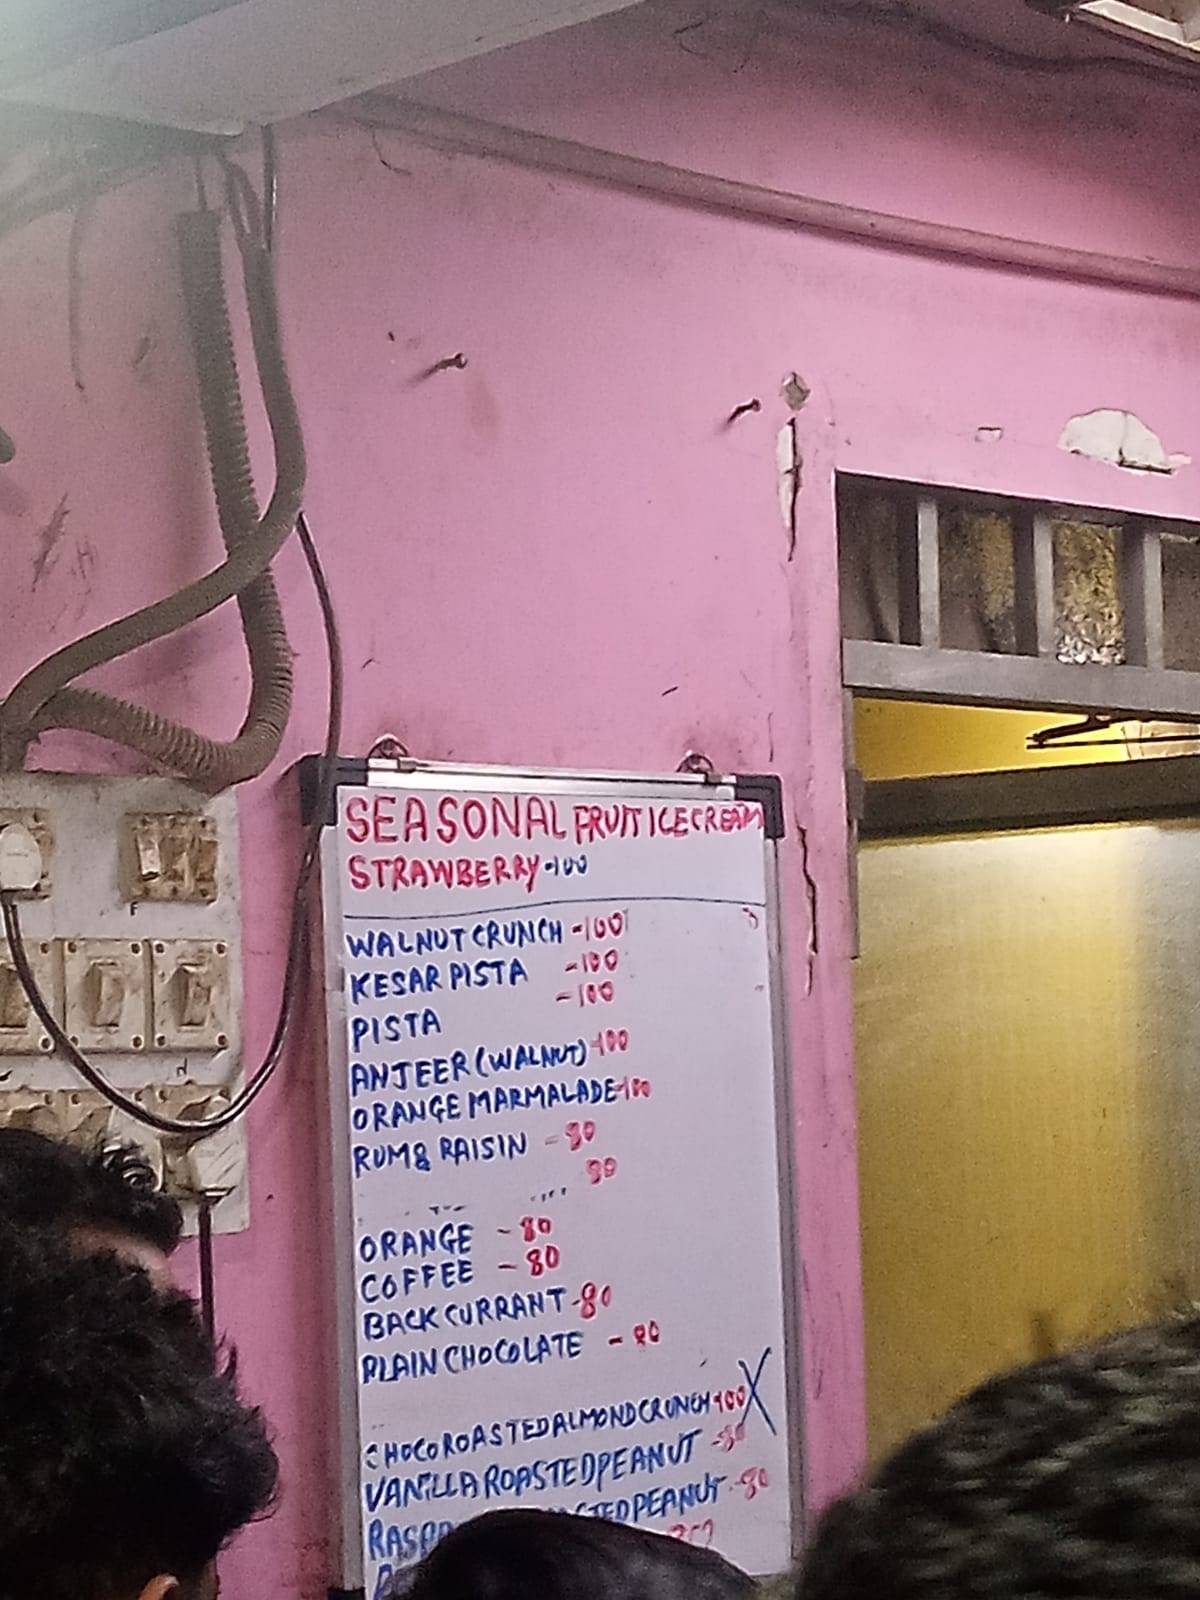 SEASONAL FRUIT ICE CREAM
STRAWBERRY-100
WALNUT CRUNCH -100
KESAR PISTA -100
PISTA -100
ANJEER (WALNUT)-100
ORANGE MARMALADE-100
RUM & RAISIN -80
80
ORANGE -80
COFFEE -80
BACK CURRANT-80
PLAIN CHOCOLATE -80
CHOCO ROASTED ALMOND CRUNCH-100 X
VANILLA ROASTED PEANUT -80
PEANUT-80